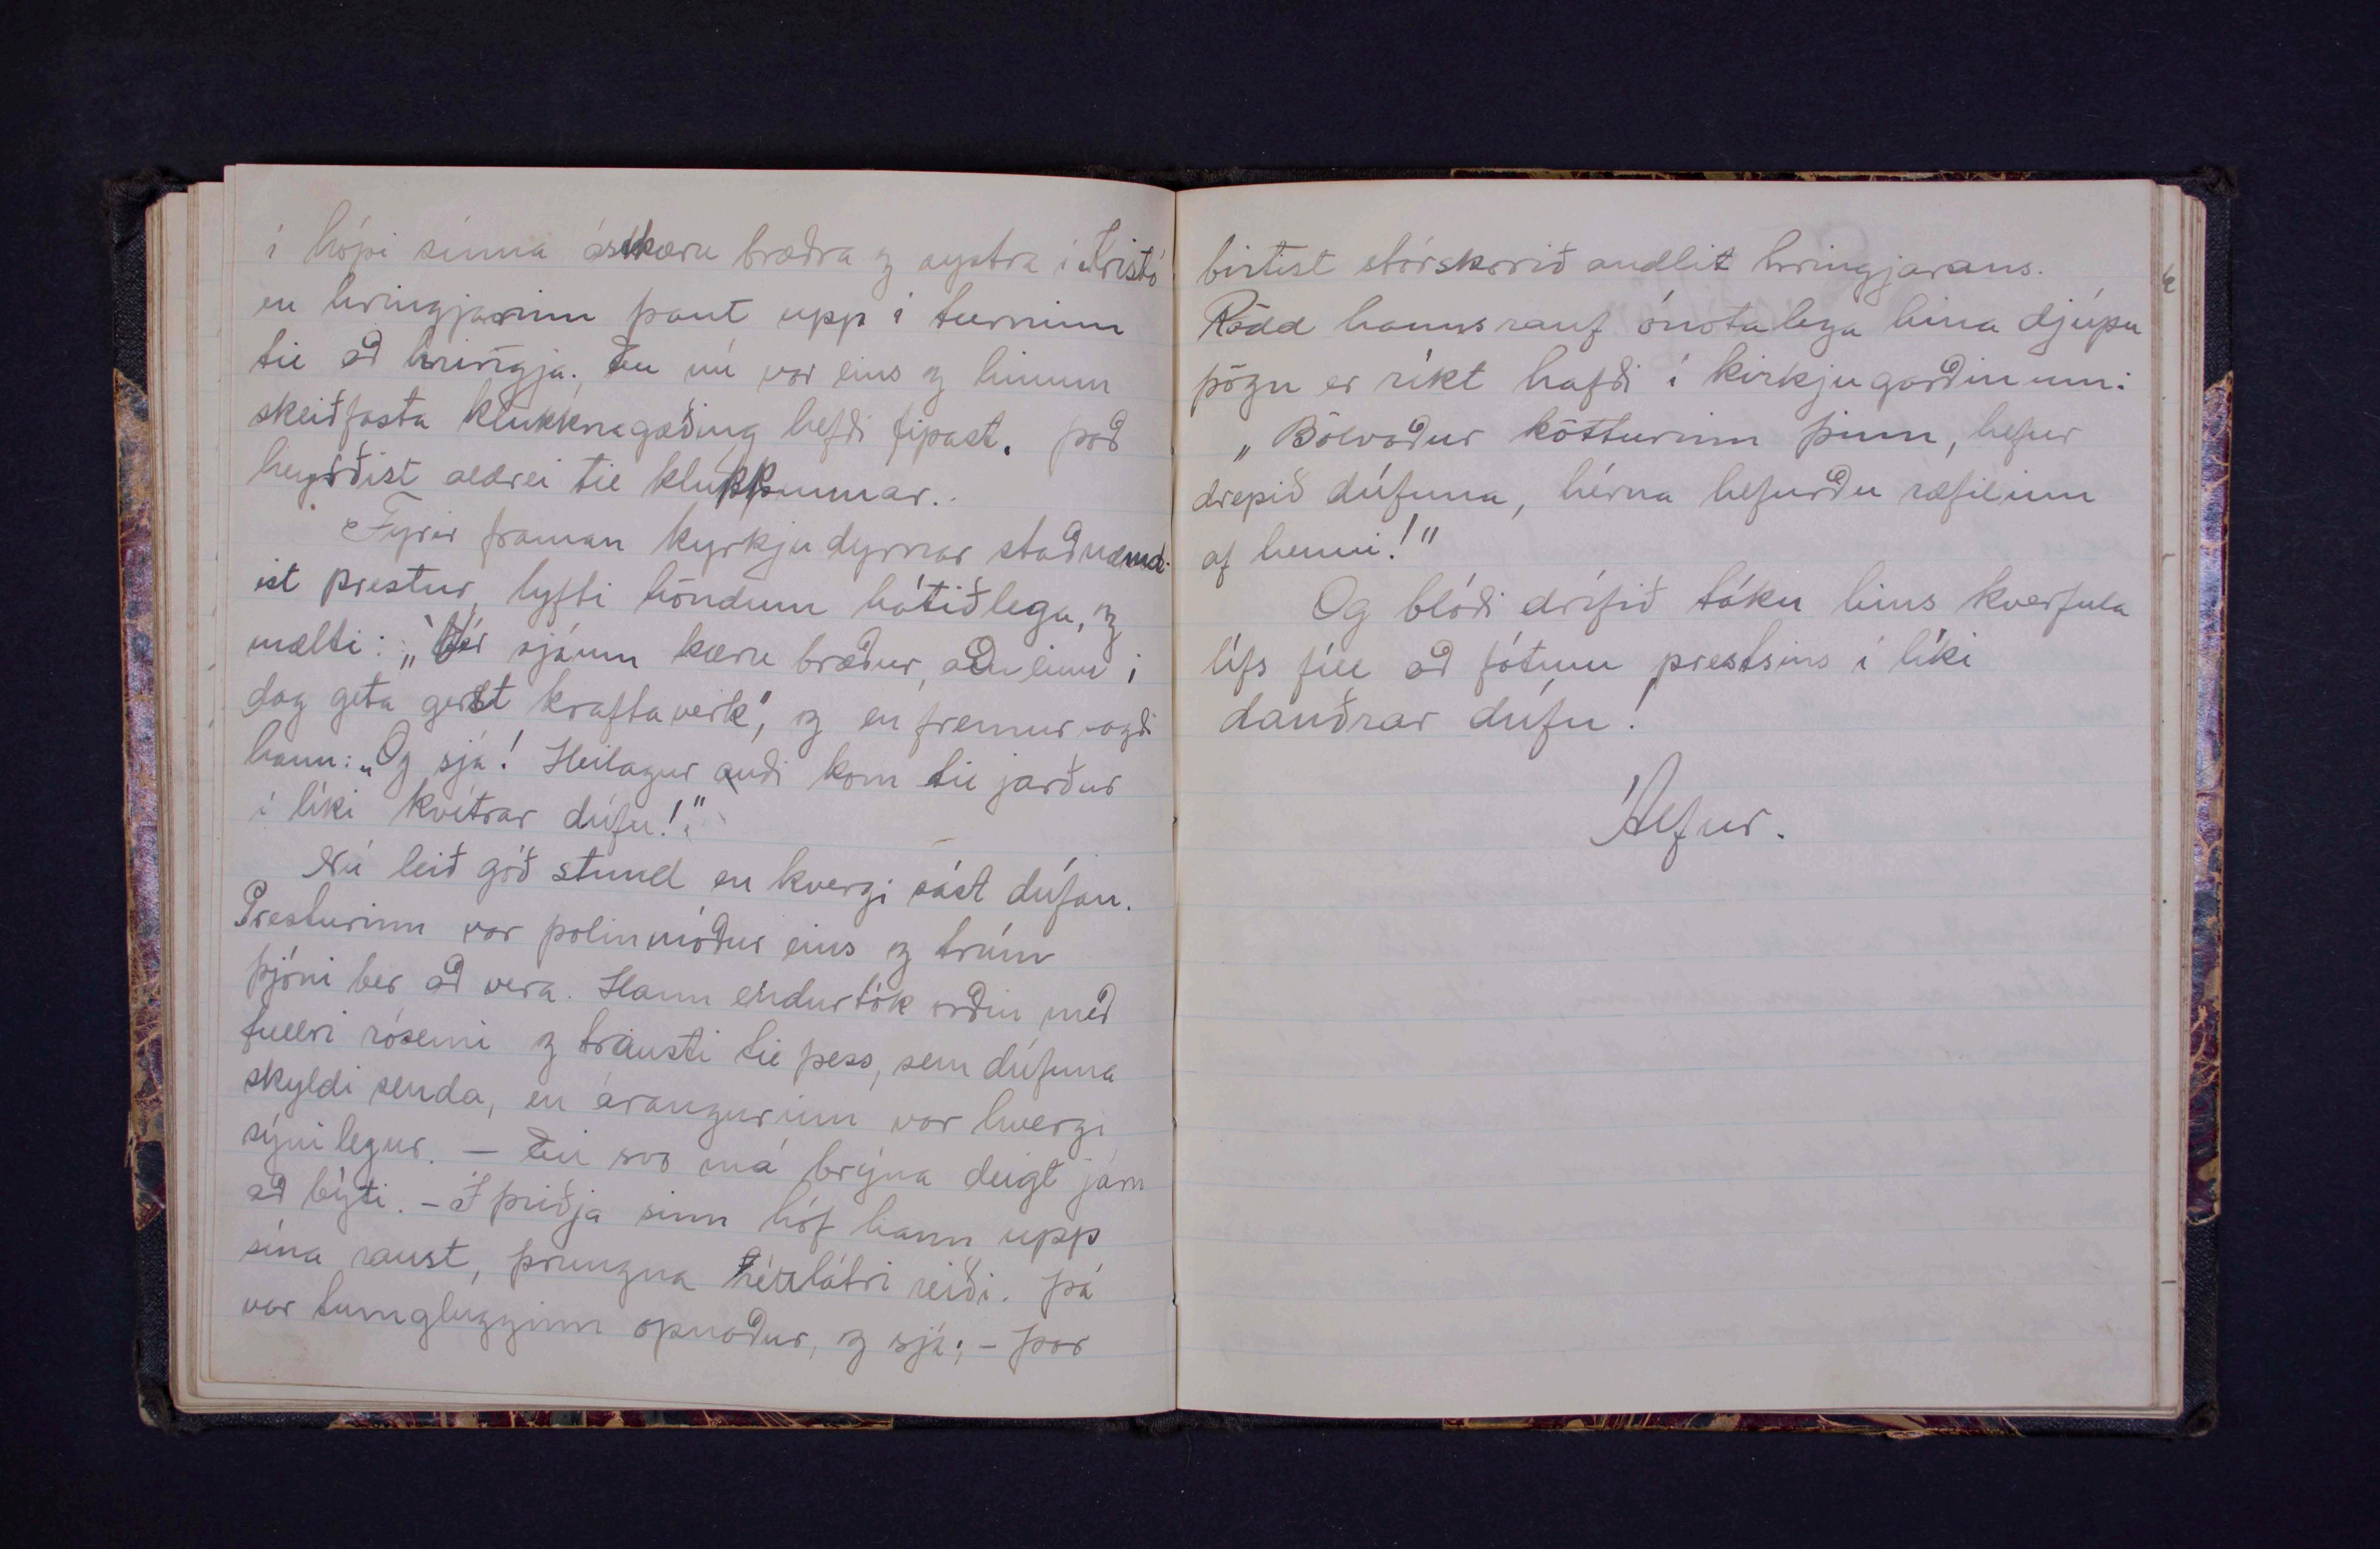 í hópi sinna ástkæru bræðra og systra í Kristó
en hringjarinn þaut upp í turninn
til að hringja. En nú var eins og hinum
skeiðfasta klukknagæðing hefði fipast. Það
heyrðist aldrei til klukknunnar.
Fyrir framan kyrkjudyrnar staðnæmd-
ist prestur, lyfti höndum hátíðlega, og
mælti: „Vér sjáum kæru bræður, að enn í
dag geta gerst kraftaverk", og en fremur sagði
hann: „Og sjá! Heilagur andi kom til jarður
í líki hvítrar dúfu!"
Nú leið góð stund en hvergi sást dúfan.
Presturinn var þolinmóður eins og trúum
þjóni ber að vera. Hann endurtók orðin með
fullri rósemi og trausti til þess, sem dúfuna
skyldi senda, en árangurinn var hvergi
sýnilegur. - En svo má brýna deigt járn
að bíti. - Í þriðja sinn hóf hann upp
sína raust, þrungna réttlátri reiði. Þá
var turnglugginn opnaður, og sjá; - þar
birtist stórskorið andlit hringjarans.
Rödd hanns rauf ónotalega hina djúpu
þögn er ríkt hafði í kirkjugarðinum:
„Bölvaður kötturinn þinn, hefur
drepið dúfuna, hérna hefurðu ræfilinn
af henni!"
Og blóði drifið tákn hins hverfula
lífs féll að fótum prestsins í líki
dauðrar dúfu!
Álfur.